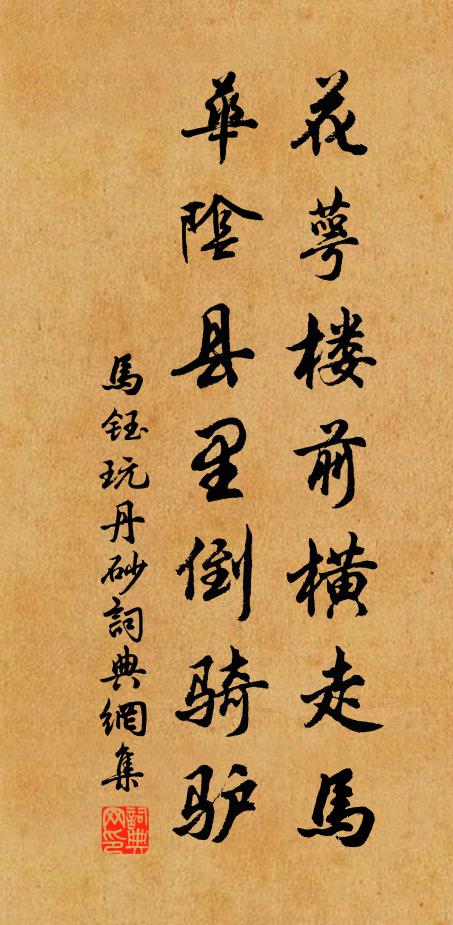 花萼楼前横走馬
華陰县里倒骑驴
馬钰玩丹砂詞典網集
詞典网印